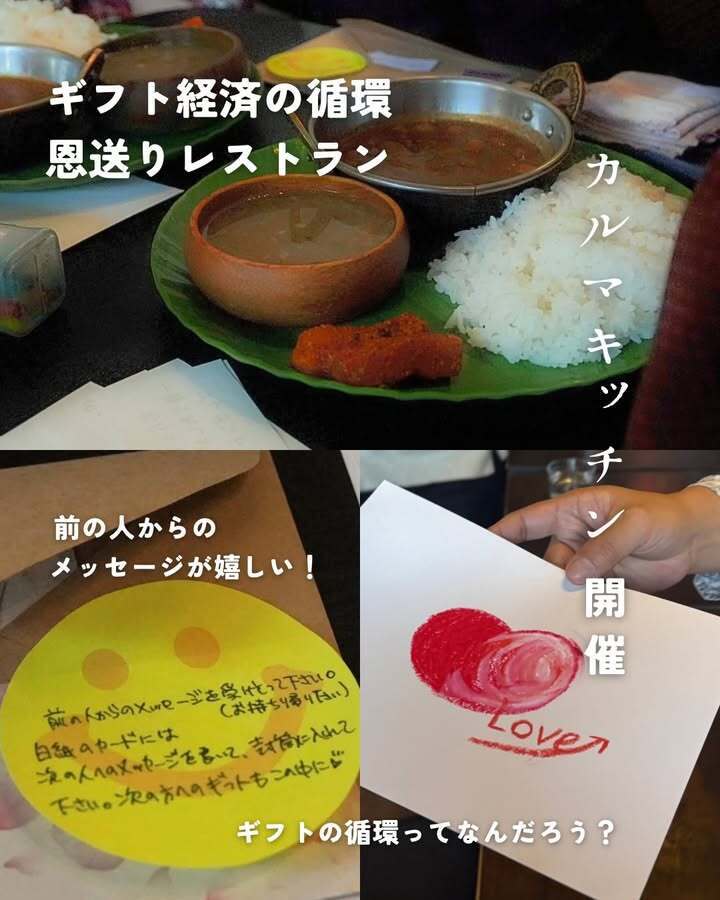 ギフト経済の循環
恩送りレストラン
カルマキッチン開催
前の人からの
メッセージが嬉しい！
前の人からのメッセージを受けとって下さい。
(お持ち帰り下さい)
白紙のカードには
次の人へのメッセージを書いて、封筒に入れて
下さい。次の方へのギフトもこの中に♡
Love
ギフトの循環ってなんだろう？